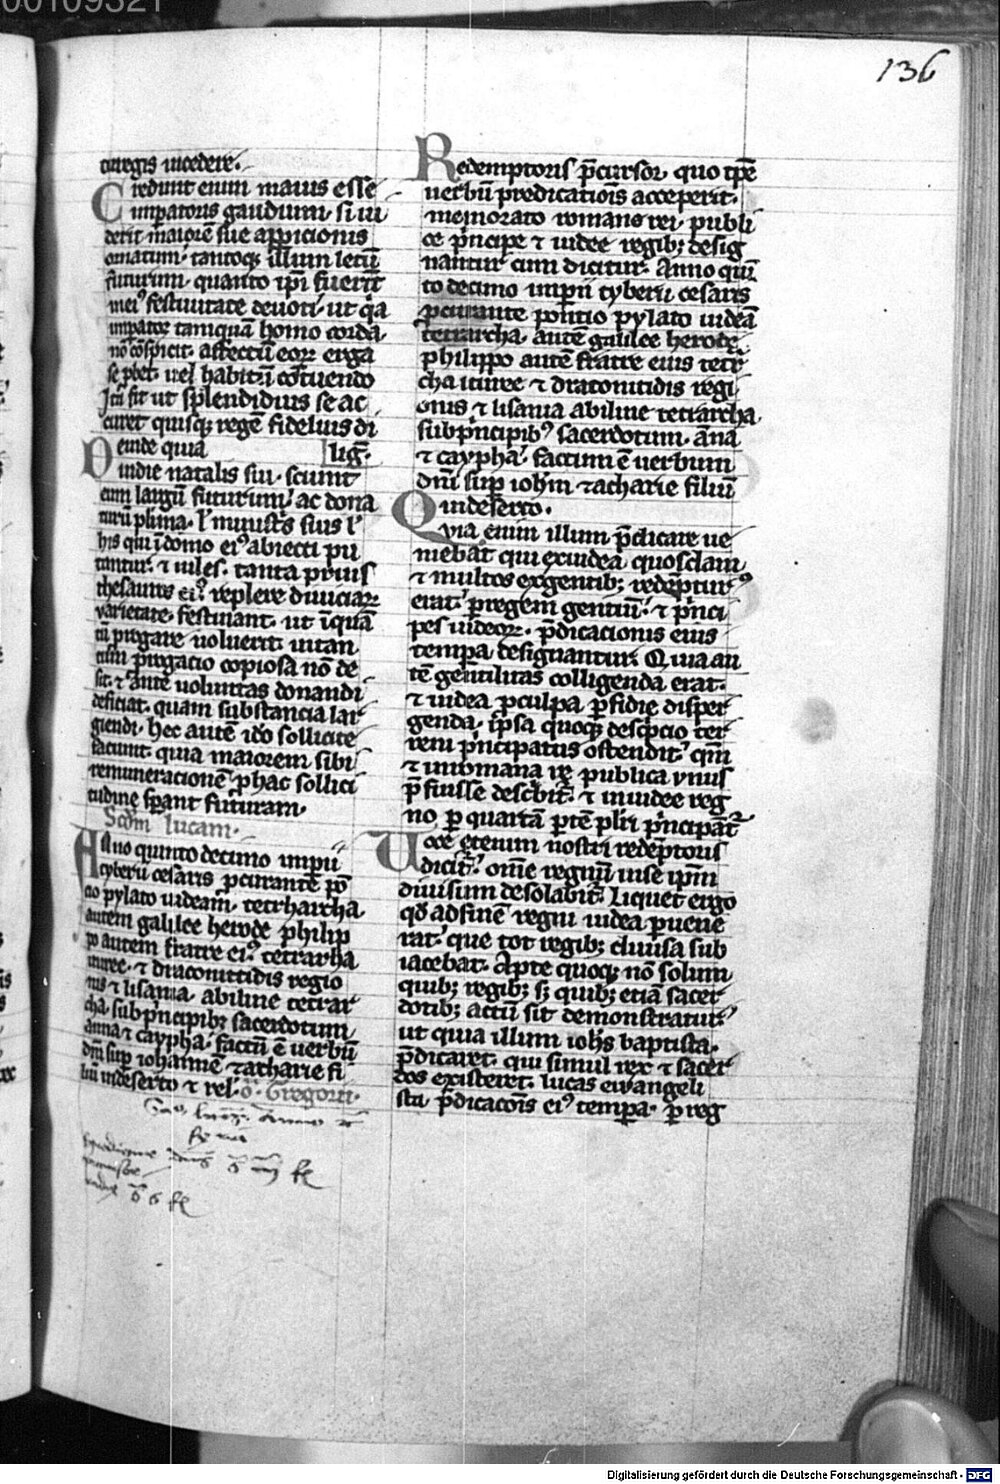 00109321
136
turegis incedere.
Credunt enim maius esse
imperatoris gaudium. si ui
derit maiorē sue apparicionis
ornatum. tantoqꝫ illum letiū
futurum. quanto ip̄i fuerīt
mei⁹ festiuitate deuoti. ut q̄a
impator tamquā homo corda.
nō cōspicit. affectū eoꝝ erga
se pbet. uel habitū cōtuendo
Ita fit ut splendidius se ac
curet quisqꝫ regē fidelius di
Deinde quia lig̅.
indie natalis sui. sciunt
eum largū futurum. ac dona
turū plima. l' minist̄s suis l'
his qui ī domo ei⁹ abiecti pu
tantur. ⁊ uiles. tanta prius
thesauros ei⁹ replere diuiciaꝝ
varietate. festinant. ut ī quā
tū progare uoluerit. intan
tum progacio copiosa nō de
sit. ⁊ ante uoluntas donandi
deficiat. quam substancia lar
giendi. hec autē iđo sollicite
faciunt. quia maiorem sibi
remuneracionē. phac sollici
tudine sperant futuram.
Scđm lucam.
Anno quinto decimo imperii
tyberii cesaris pcurante pō
cio pylato iudeam. tetrharcha
autem galilee herode philip
po autem fratre ei⁹. tetrarha
ituree. ⁊ draconitidis regio
nis ⁊ lisania. abiline tetrar
cha. sub p̄ncipibꝫ sacerdotum
anna ⁊ caypha. factū ē uerbū
dn̄i sup iohannē ⁊ zacharie fi
liū in deserto ⁊ rel'. o. Gregorii.
Redemptoris p̄cursor. quo tp̄e
uerbū predicationis acceperit.
memorato romane rei. publi
ce p̄ncipe ⁊ iudee regibꝫ desig
nantur cum dicitur. Anno quī
to decimo imperii tyberii cesaris
pcurante pontio pylato iudeā
tetrarcha. autē galilee herode.
philippo autē fratre eius tetr
cha ituree ⁊ draconitidis regi
onis ⁊ lisania abiline tetrarcha
sub p̄ncipib⁹ sacerdotum. āna
⁊ caypha. factum ē uerbum
dn̄i sup ioh̄m zacharie filiū
in deserto.
Quia enim illum p̄dicare ue
niebat qui ex iudea quosdam
⁊ multos ex gentibꝫ redēptur⁹
erat. p regem gentiū. ⁊ p̄nci
pes iudeoꝝ. p̄dicacionis eius
tempa designantur. Quia au
tē gentilitas colligenda erat.
⁊ iudea p culpa pfidie disper
genda. ip̄sa quoqꝫ descp̄cio ter
reni p̄ncipatus ostendit. qm̄
⁊ in romana re publica vnus
p̄fuisse descbit̄. ⁊ in iudee reg
no p quartā ptē plīri p̄ncipāt̄.
Voce etenim nostri redēptoris
dicit̄. om̄e regnū in se ip̄m
diuisum desolabit̄. Liquet ergo
qđ ad finē regni iudea puene
rat. que tot regibꝫ diuisa sub
iacebat. Apte quoqꝫ nō solum
quibꝫ regibꝫ sꝫ quibꝫ etiā sacer
dotibꝫ actū sit demonstratur.
ut quia illum ioh̄s baptista.
p̄dicaret. qui simul rex ⁊ sacer
dos existeret. lucas ewangeli
sta p̄dicacōis ei⁹ tempa. p reg
Digitalisierung gefördert durch die Deutsche Forschungsgemeinschaft - DFG